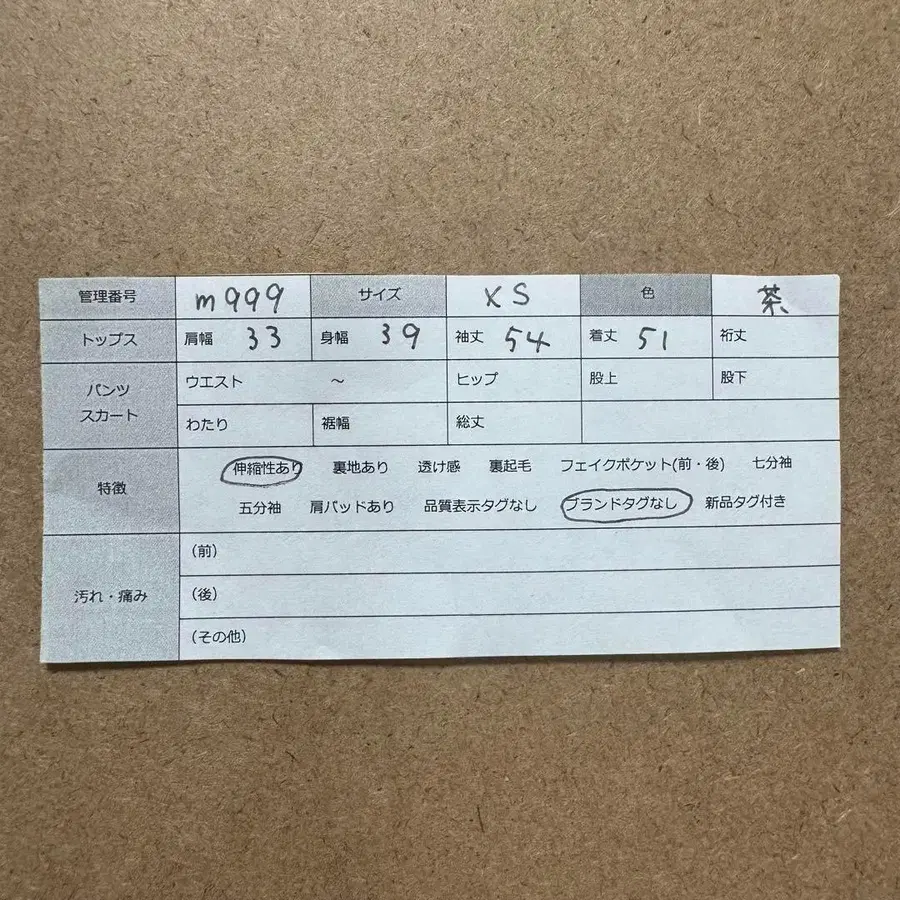 管理番号 m999 サイズ XS 色 茶
トップス 肩幅 33 身幅 39 袖丈 54 着丈 51 裄丈
パンツ スカート ウエスト ～ ヒップ 股上 股下
わたり 裾幅 総丈
特徴 伸縮性あり 裏地あり 透け感 裏起毛 フェイクポケット(前・後) 七分袖
五分袖 肩パッドあり 品質表示タグなし ブランドタグなし 新品タグ付き
汚れ・痛み (前)
(後)
(その他)